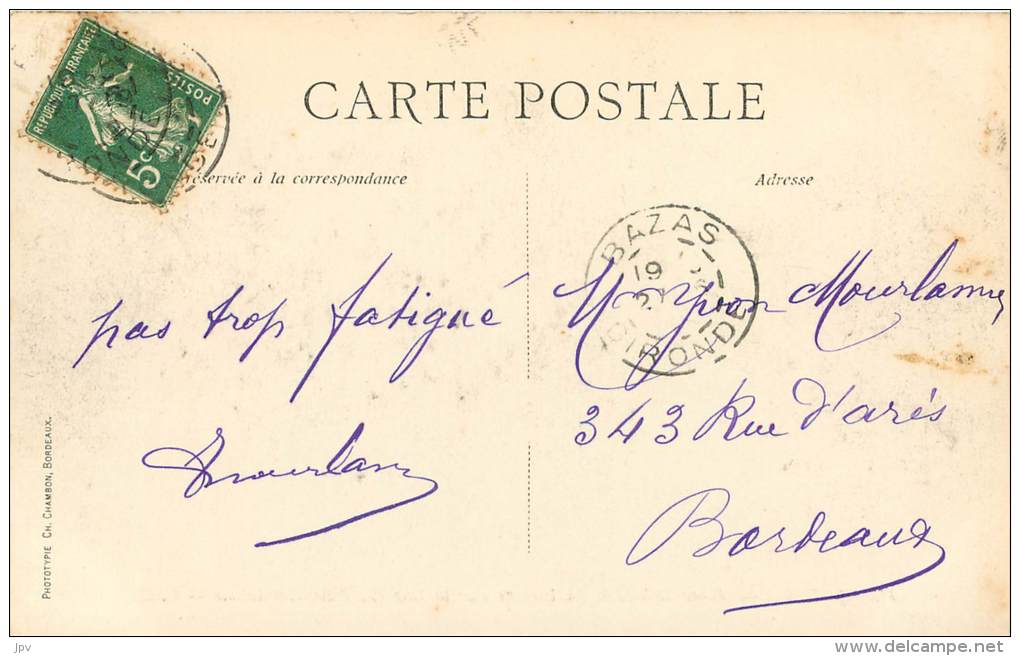 CARTE POSTALE
réservée à la correspondance
Adresse
RÉPUBLIQUE FRANÇAISE
POSTES
5c
BAZAS
19
GIRONDE
pas trop fatigué
Mourlanne
343 Rue d'arès
Bordeaux
PHOTOTYPIE CH. CHAMBON, BORDEAUX.
jpv
www.delcampe.net